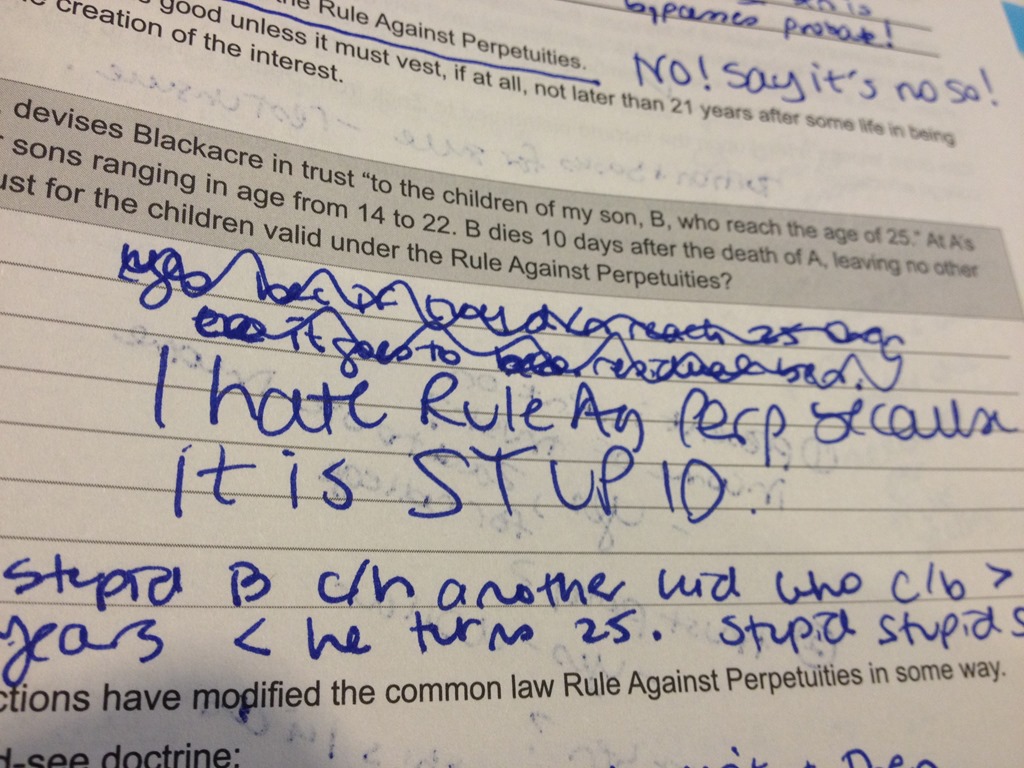 this is
bypasses probate!
the Rule Against Perpetuities.
good unless it must vest, if at all, not later than 21 years after some life in being
creation of the interest.
NO! say it's no so!
devises Blackacre in trust “to the children of my son, B, who reach the age of 25.” At A's
sons ranging in age from 14 to 22. B dies 10 days after the death of A, leaving no other
ust for the children valid under the Rule Against Perpetuities?
reach 25
it goes to
I hate Rule Ag Perp because
it is STUPID.
stupid B c/h another kid who c/b >
years < he turns 25. stupid stupid s
ctions have modified the common law Rule Against Perpetuities in some way.
d-see doctrine: